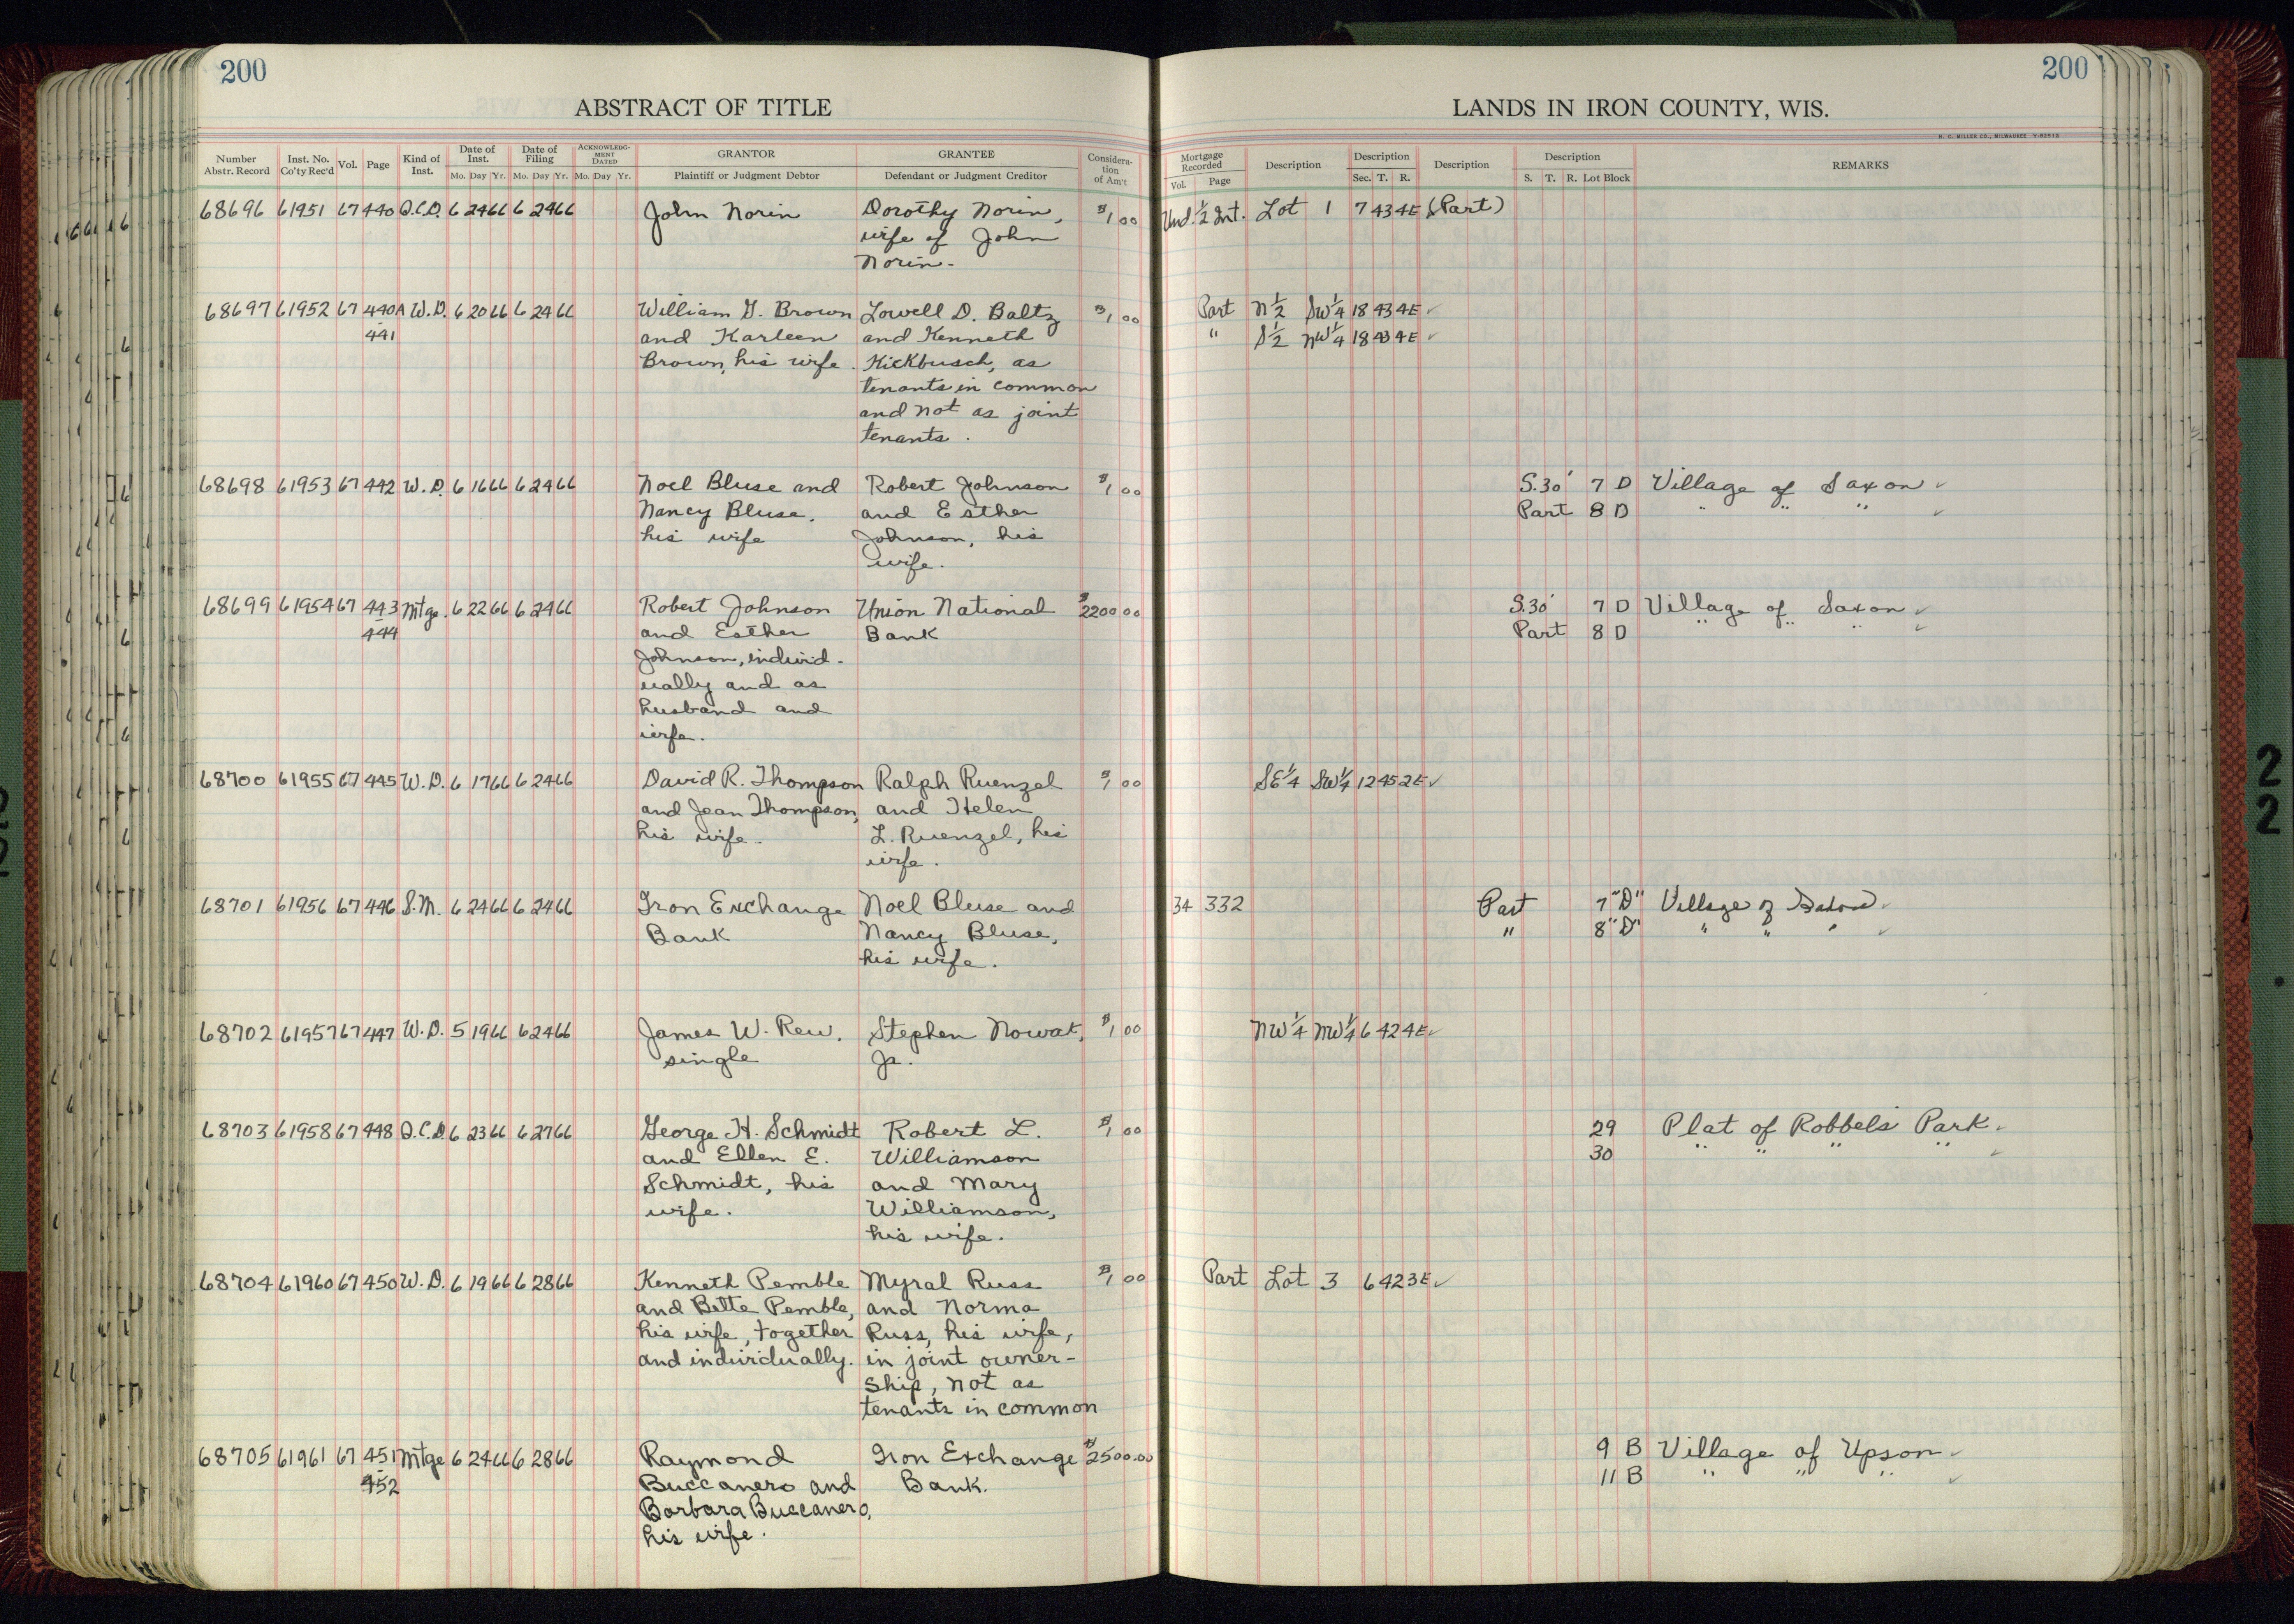 200
200
ABSTRACT OF TITLE
LANDS IN IRON COUNTY, WIS.
H. C. MILLER CO., MILWAUKEE
Number Abstr. Record Inst. No. Co'ty Rec'd Vol. Page Kind of Inst. Date of Inst. Mo. Day Yr. Date of Filing Mo. Day Yr. ACKNOWLEDGMENT DATED Mo. Day Yr. GRANTOR Plaintiff or Judgment Debtor GRANTEE Defendant or Judgment Creditor Consideration of Am't
Mortgage Recorded Vol. Page Description Description Sec. T. R. Description Description S. T. R. Lot Block REMARKS
68696 61951 67 440 Q.C.D. 6 24 66 6 24 66 John Norin Dorothy Norin, $1 00 Und. 1/2 Int. Lot 1 7 43 4E (Part)
wife of John
Norin.
68697 61952 67 440A W.D. 6 20 66 6 24 66 William G. Brown Lowell D. Baltz $1 00 Part N 1/2 SW 1/4 18 43 4E ✓
441 and Karleen and Kenneth " S 1/2 NW 1/4 18 43 4E ✓
Brown, his wife. Kickbusch, as
tenants in common
and not as joint
tenants.
68698 61953 67 442 W.D. 6 16 66 6 24 66 Noel Bluse and Robert Johnson $1 00 S.30' 7 D Village of Saxon ✓
Nancy Bluse, and Esther Part 8 D " " " ✓
his wife Johnson, his
wife.
68699 61954 67 443 Mtge. 6 22 66 6 24 66 Robert Johnson Union National $2200 00 S.30' 7 D Village of Saxon ✓
444 and Esther Bank Part 8 D " " " ✓
Johnson, individ-
ually and as
husband and
wife.
68700 61955 67 445 W.D. 6 17 66 6 24 66 David R. Thompson Ralph Ruenzel $1 00 SE 1/4 SW 1/4 12 45 2E ✓
and Jean Thompson, and Helen
his wife. L. Ruenzel, his
wife.
68701 61956 67 446 S.M. 6 24 66 6 24 66 Iron Exchange Noel Bluse and 34 332 Part 7 "D" Village of Saxon ✓
Bank Nancy Bluse, " 8 "D" " " " ✓
his wife.
68702 61957 67 447 W.D. 5 19 66 6 24 66 James W. Rew, Stephen Nowat, $1 00 NW 1/4 NW 1/4 6 42 4E ✓
single Jr.
68703 61958 67 448 Q.C.D. 6 23 66 6 27 66 George H. Schmidt Robert L. $1 00 29 Plat of Robbels Park ✓
and Ellen E. Williamson 30 " " " " ✓
Schmidt, his and Mary
wife. Williamson,
his wife.
68704 61960 67 450 W.D. 6 19 66 6 28 66 Kenneth Pemble Myral Russ $1 00 Part Lot 3 6 42 3E ✓
and Bette Pemble, and Norma
his wife, together Russ, his wife,
and individually. in joint owner-
ship, not as
tenants in common
68705 61961 67 451 Mtge 6 24 66 6 28 66 Raymond Iron Exchange $2500.00 9 B Village of Upson ✓
452 Buccanero and Bank. 11 B " " " ✓
Barbara Buccanero,
his wife.
22